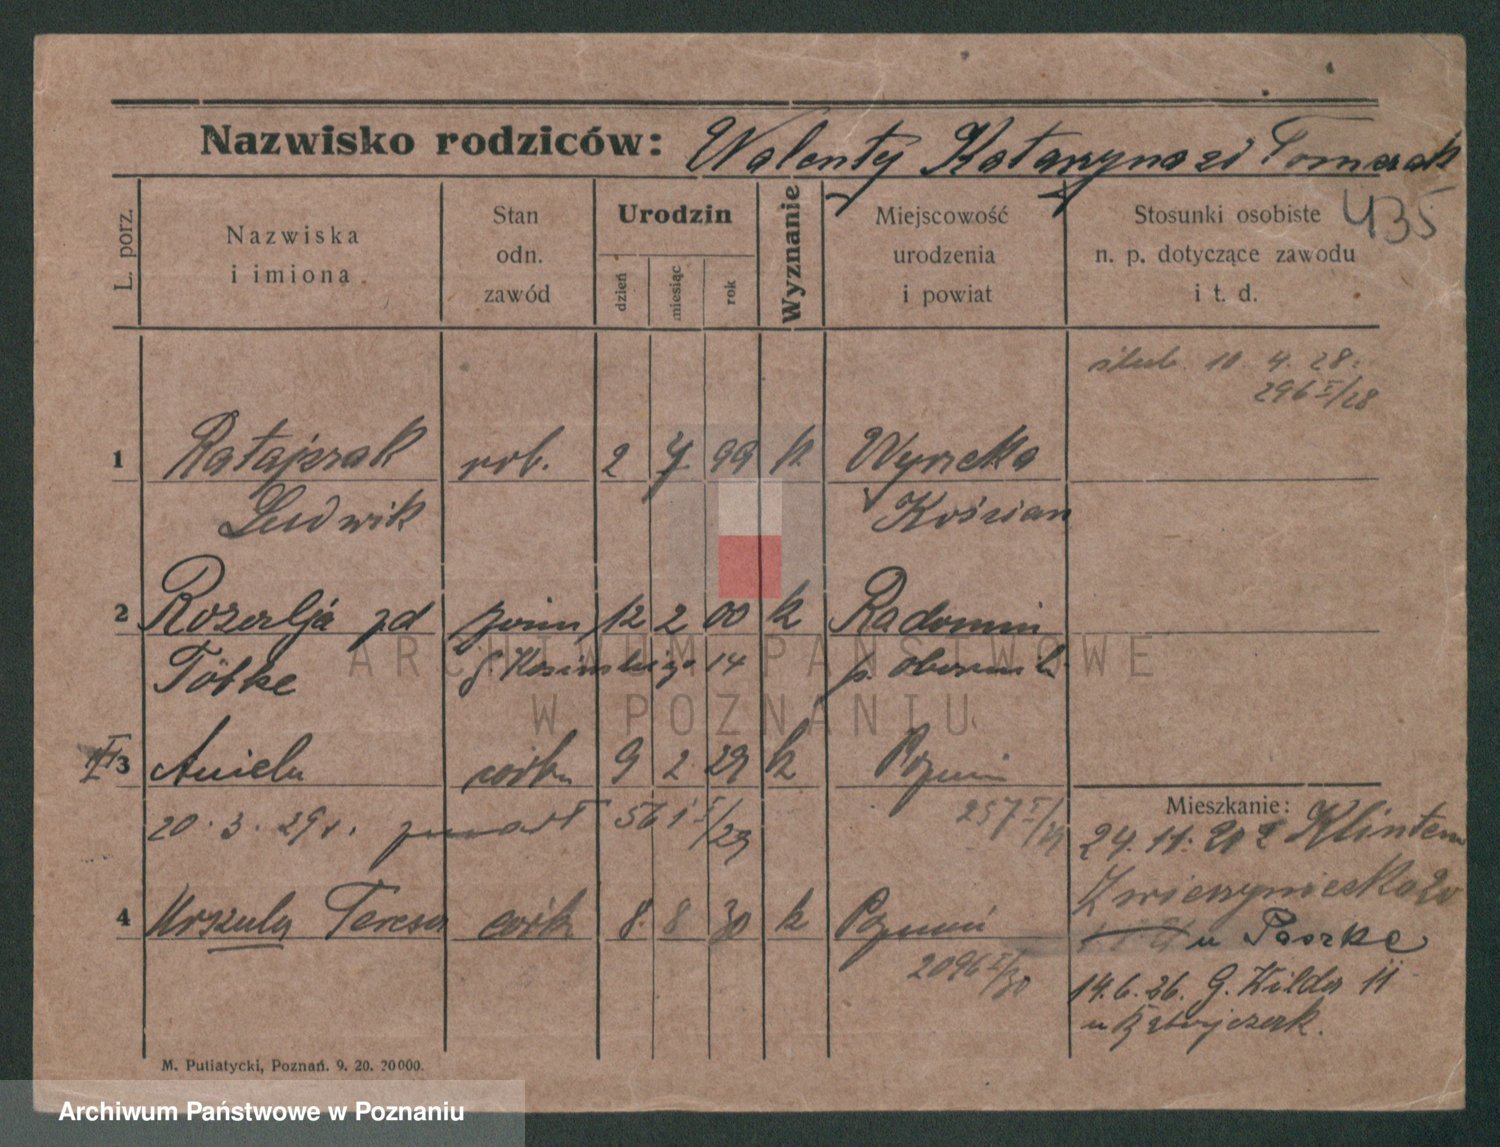 Nazwisko rodziców: Walenty Katarzyna zd Tomczak
435
L. porz.
Nazwiska i imiona
Stan odn. zawód
Urodzin
dzień
miesiąc
rok
Wyznanie
Miejscowość urodzenia i powiat
Stosunki osobiste n. p. dotyczące zawodu i t. d.
ślub. 10 4. 28.
296 I/28
1 Ratajczak rob. 2 7 99 k Wyrzeka
Ludwik Kościan
2 Rozalja zd żona 12 2 00 k Radomin
Tölke 14 p. Obornik
3 Aniela córka 9 2 29 k Poznań
20. 3. 29 r. zmarł 561 I/29 257 I/29
4 Urszula Teresa córk 8. 8 30 k Poznań
2096 I/30
Mieszkanie:
24. 11. 20 z
Zwierzyniecka 20
u Paszke
14. 6. 26. G. Wilda 11
u
M. Putiatycki, Poznań. 9. 20. 20000.
ARCHIWUM PAŃSTWOWE
W POZNANIU
Archiwum Państwowe w Poznaniu